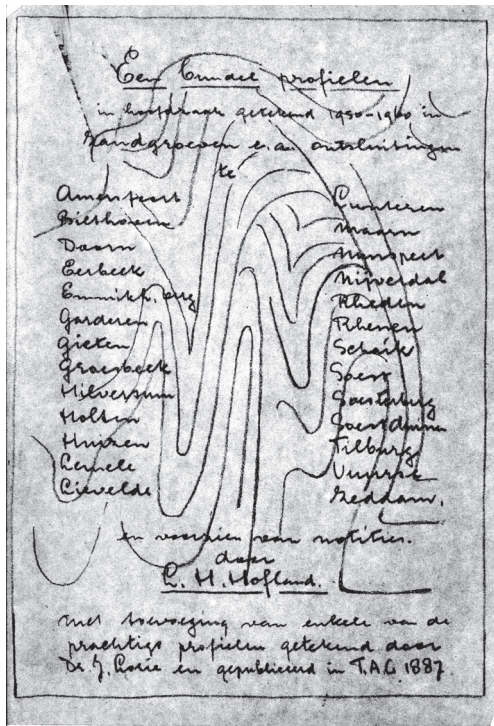 Een bundel profielen
in hoofdzaak getekend 1950-1960 in
Zandgroeven e.a. ontsluitingen
te
Amersfoort
Bilthoven
Doorn
Eerbeek
Emmikh. berg
Garderen
Gieten
Groesbeek
Hilversum
Holten
Huizen
Lemele
Lievelde
Lunteren
Maarn
Nunspeet
Nijverdal
Rheden
Rhenen
Schaik
Soest
Soesterberg
Soestduinen
Tilburg
Vuursche
Zeddam.
en voorzien van notities.
door
L. H. Hofland.
met toevoeging van enkele van de
prachtige profielen getekend door
Dr. J. Lorié en gepubliceerd in T.A.G. 1887.